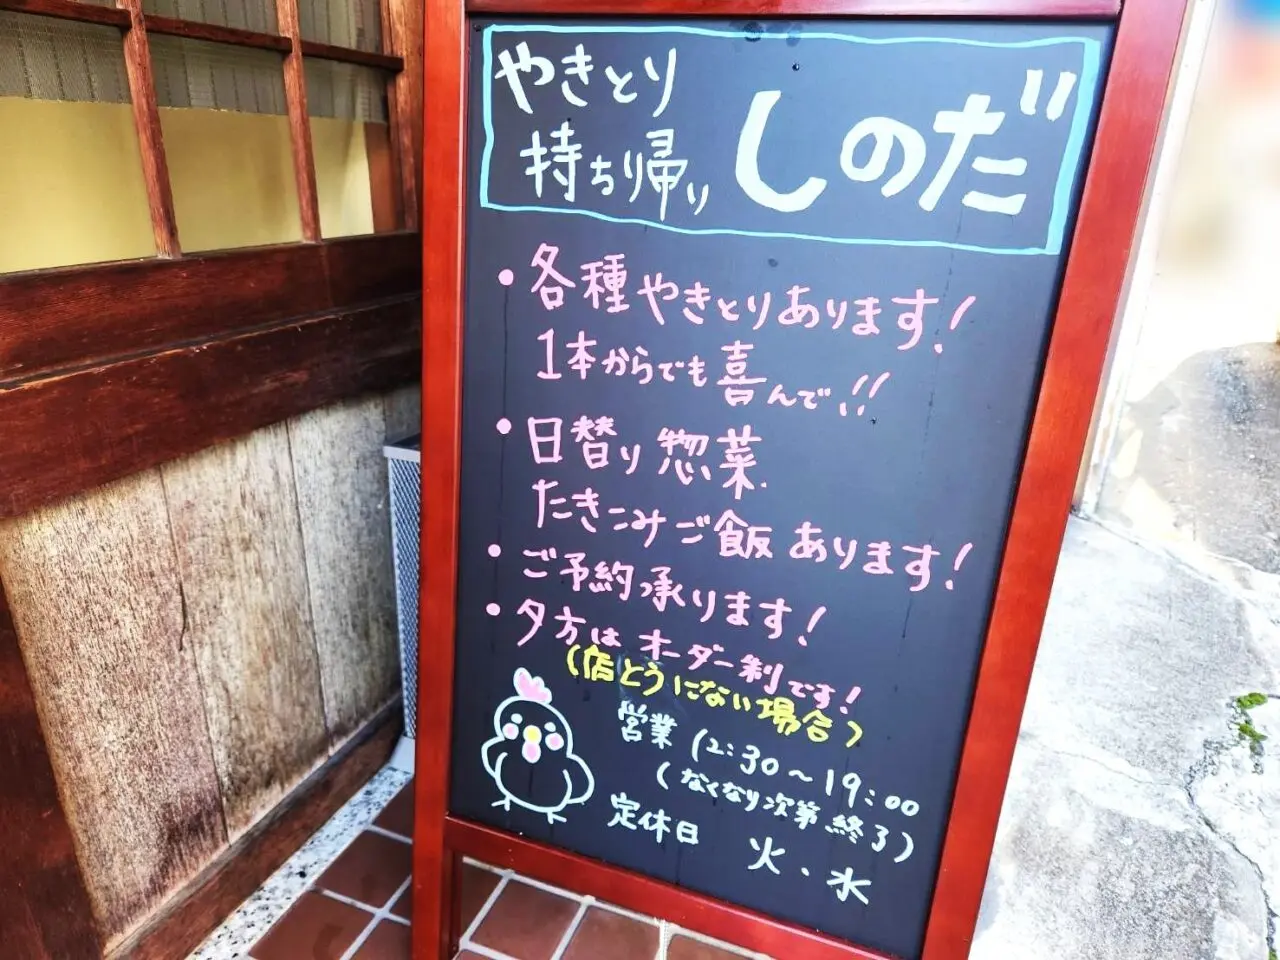 やきとり
持ち帰り
しのだ
・各種やきとりあります!
1本からでも喜んで!!
・日替り惣菜
たきこみご飯あります!
・ご予約承ります!
・夕方はオーダー制です!
(店とうにない場合)
営業 12:30~19:00
(なくなり次第終了)
定休日 火・水